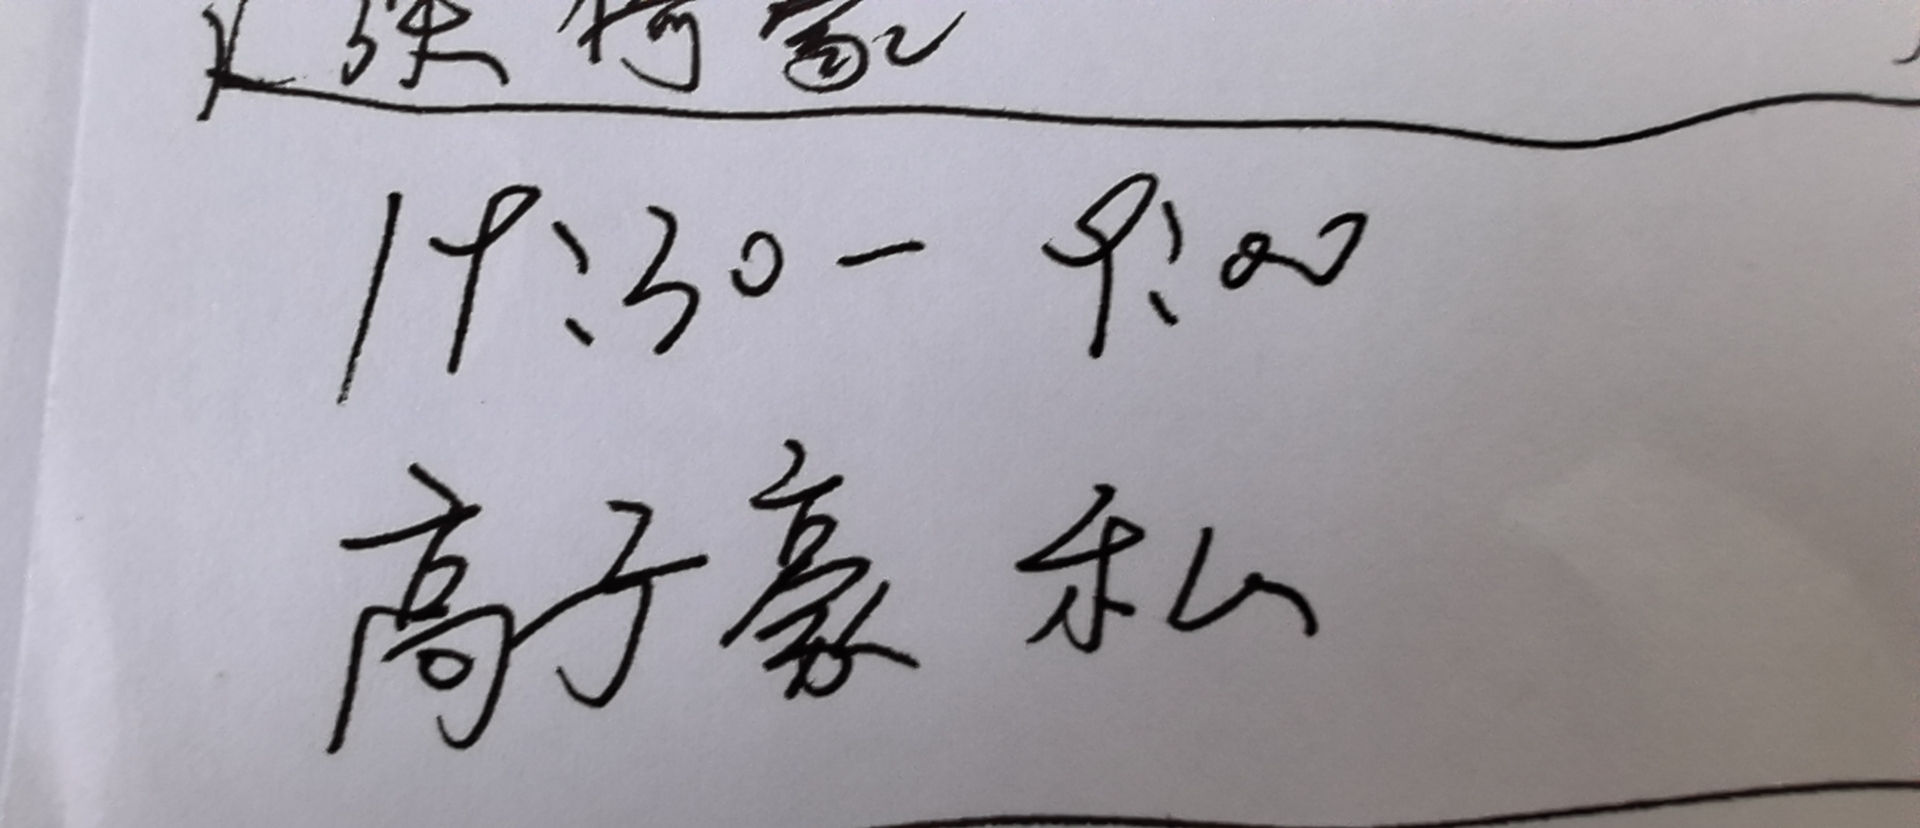 19:30－9:00
高子豪 私